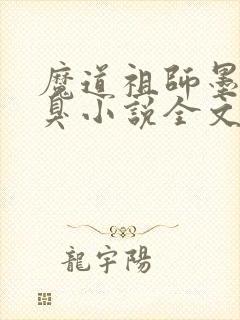 魔道祖師墨
臭小說全文
龍宇陽